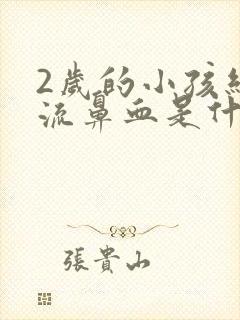 2歲的小孩
流鼻血是什
張貴山